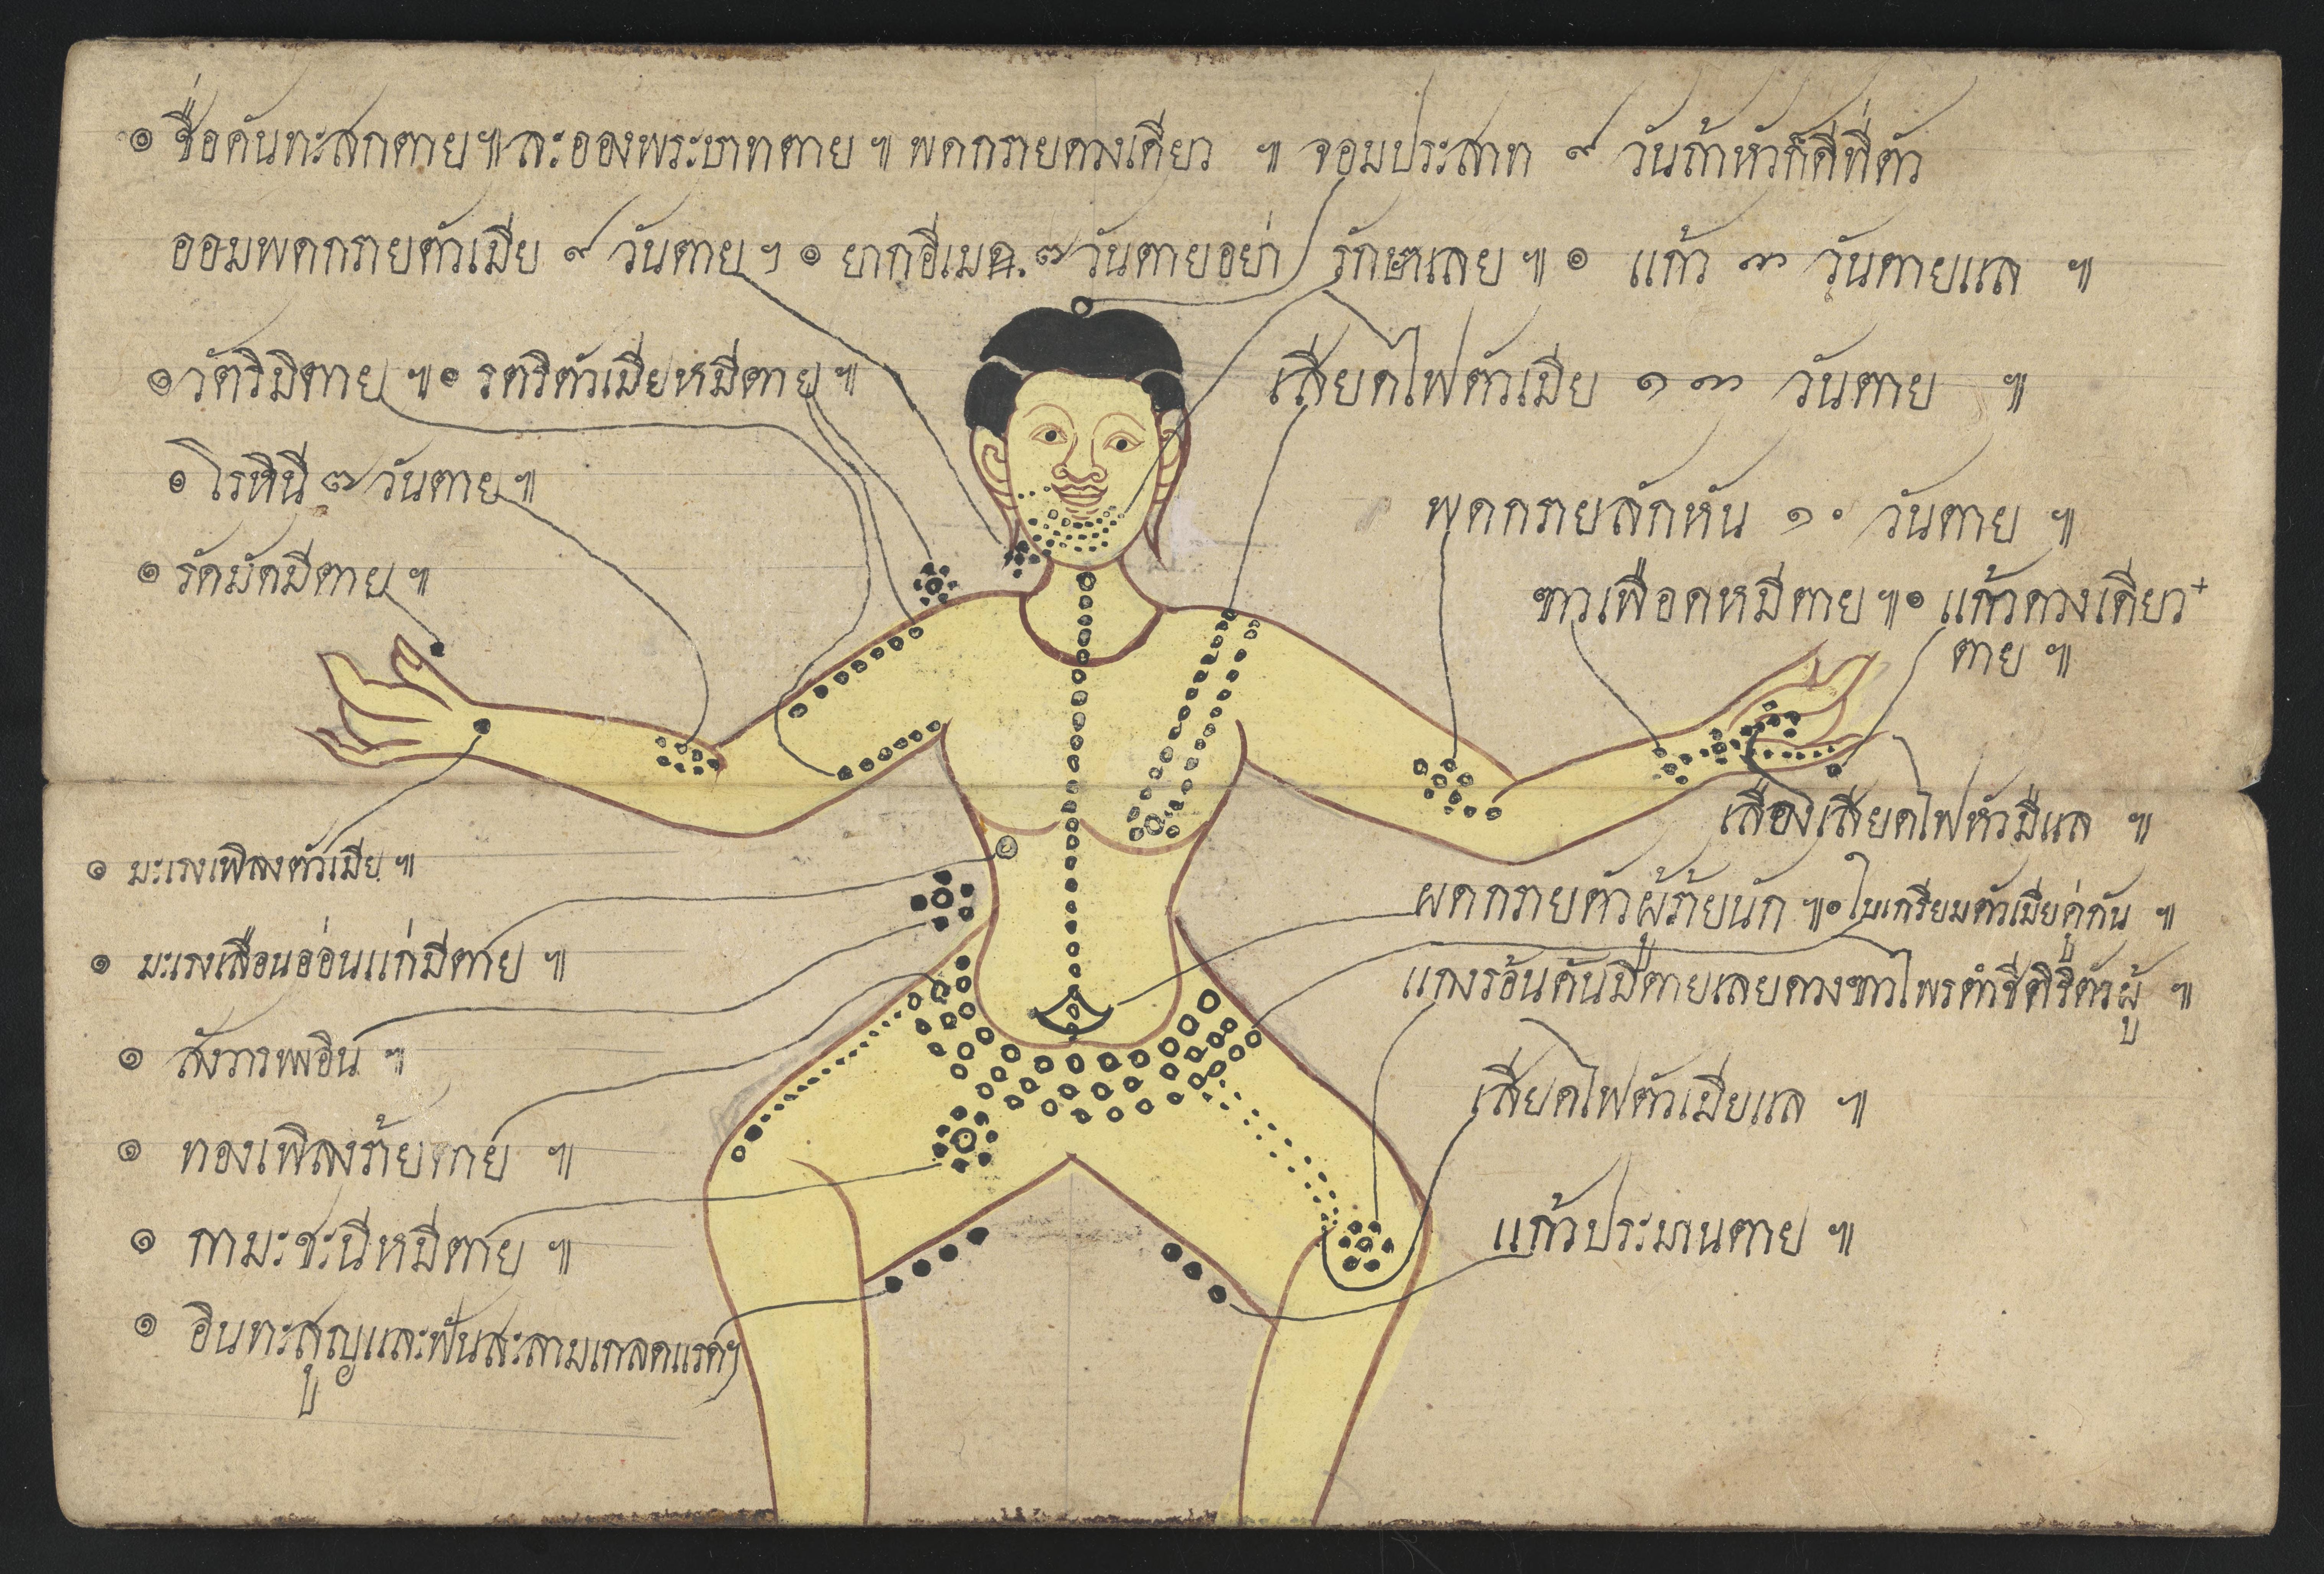 ๏ ชื่อคันทะสกตาย๚ละอองพระบาทตาย ๚ พดกรายดวงเดียว ๚ จอมประสาท ๙ วันถ้าหัวก็ดีที่ตัว
ออมพดกรายตัวเมีย ๙ วันตาย ๆ ๏ ยากอีเมฉ. ๗ วันตายอย่า รักษาเลย ๚ ๏ แก้ว ๓ วันตายแล ๚
๏ วัตริมิตาย ๚ ๏ รตริตัวเมียหมีตาย ๚
เสียดไฟตัวเมีย ๑๓ วันตาย ๚
๏ โรหินี ๗ วันตาย ๚
พดกรายลักหัน ๑๐ วันตาย ๚
๏ รัดมัดมีตาย ๚
ขาวเพือดหมีตาย ๚ ๏ แก้วดวงเดียว+
ตาย ๚
เสืองเสียดไฟหัวมีแล ๚
๏ มะเรงเพิลงตัวเมีย ๚
ผดกรายตัวผู้ร้ายนัก ๚ ๏ ใบเกรียมตัวเมียคู่กัน ๚
๏ มะเรงเลือนอ่อนแก่มีตาย ๚
แกงร้อนคันมีตายเลยดวงขาวไพรดำชีศิริตัวผู้ ๚
๏ สังวารพอิน ๚
เสียดไฟตัวเมียแล ๚
๏ ทองเพิลงร้ายตาย ๚
แก้วประมานตาย ๚
๏ กามะชะนีหมีตาย ๚
๏ อินทะสูญและฟันสะลามเกลดแรดฯ